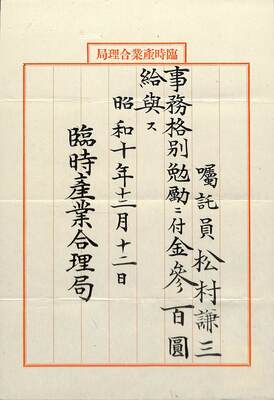 臨時產業合理局
囑託員 松村謙三
事務格別勉勵ニ付金參百圓
給與ス
昭和十年十二月十二日
臨時產業合理局